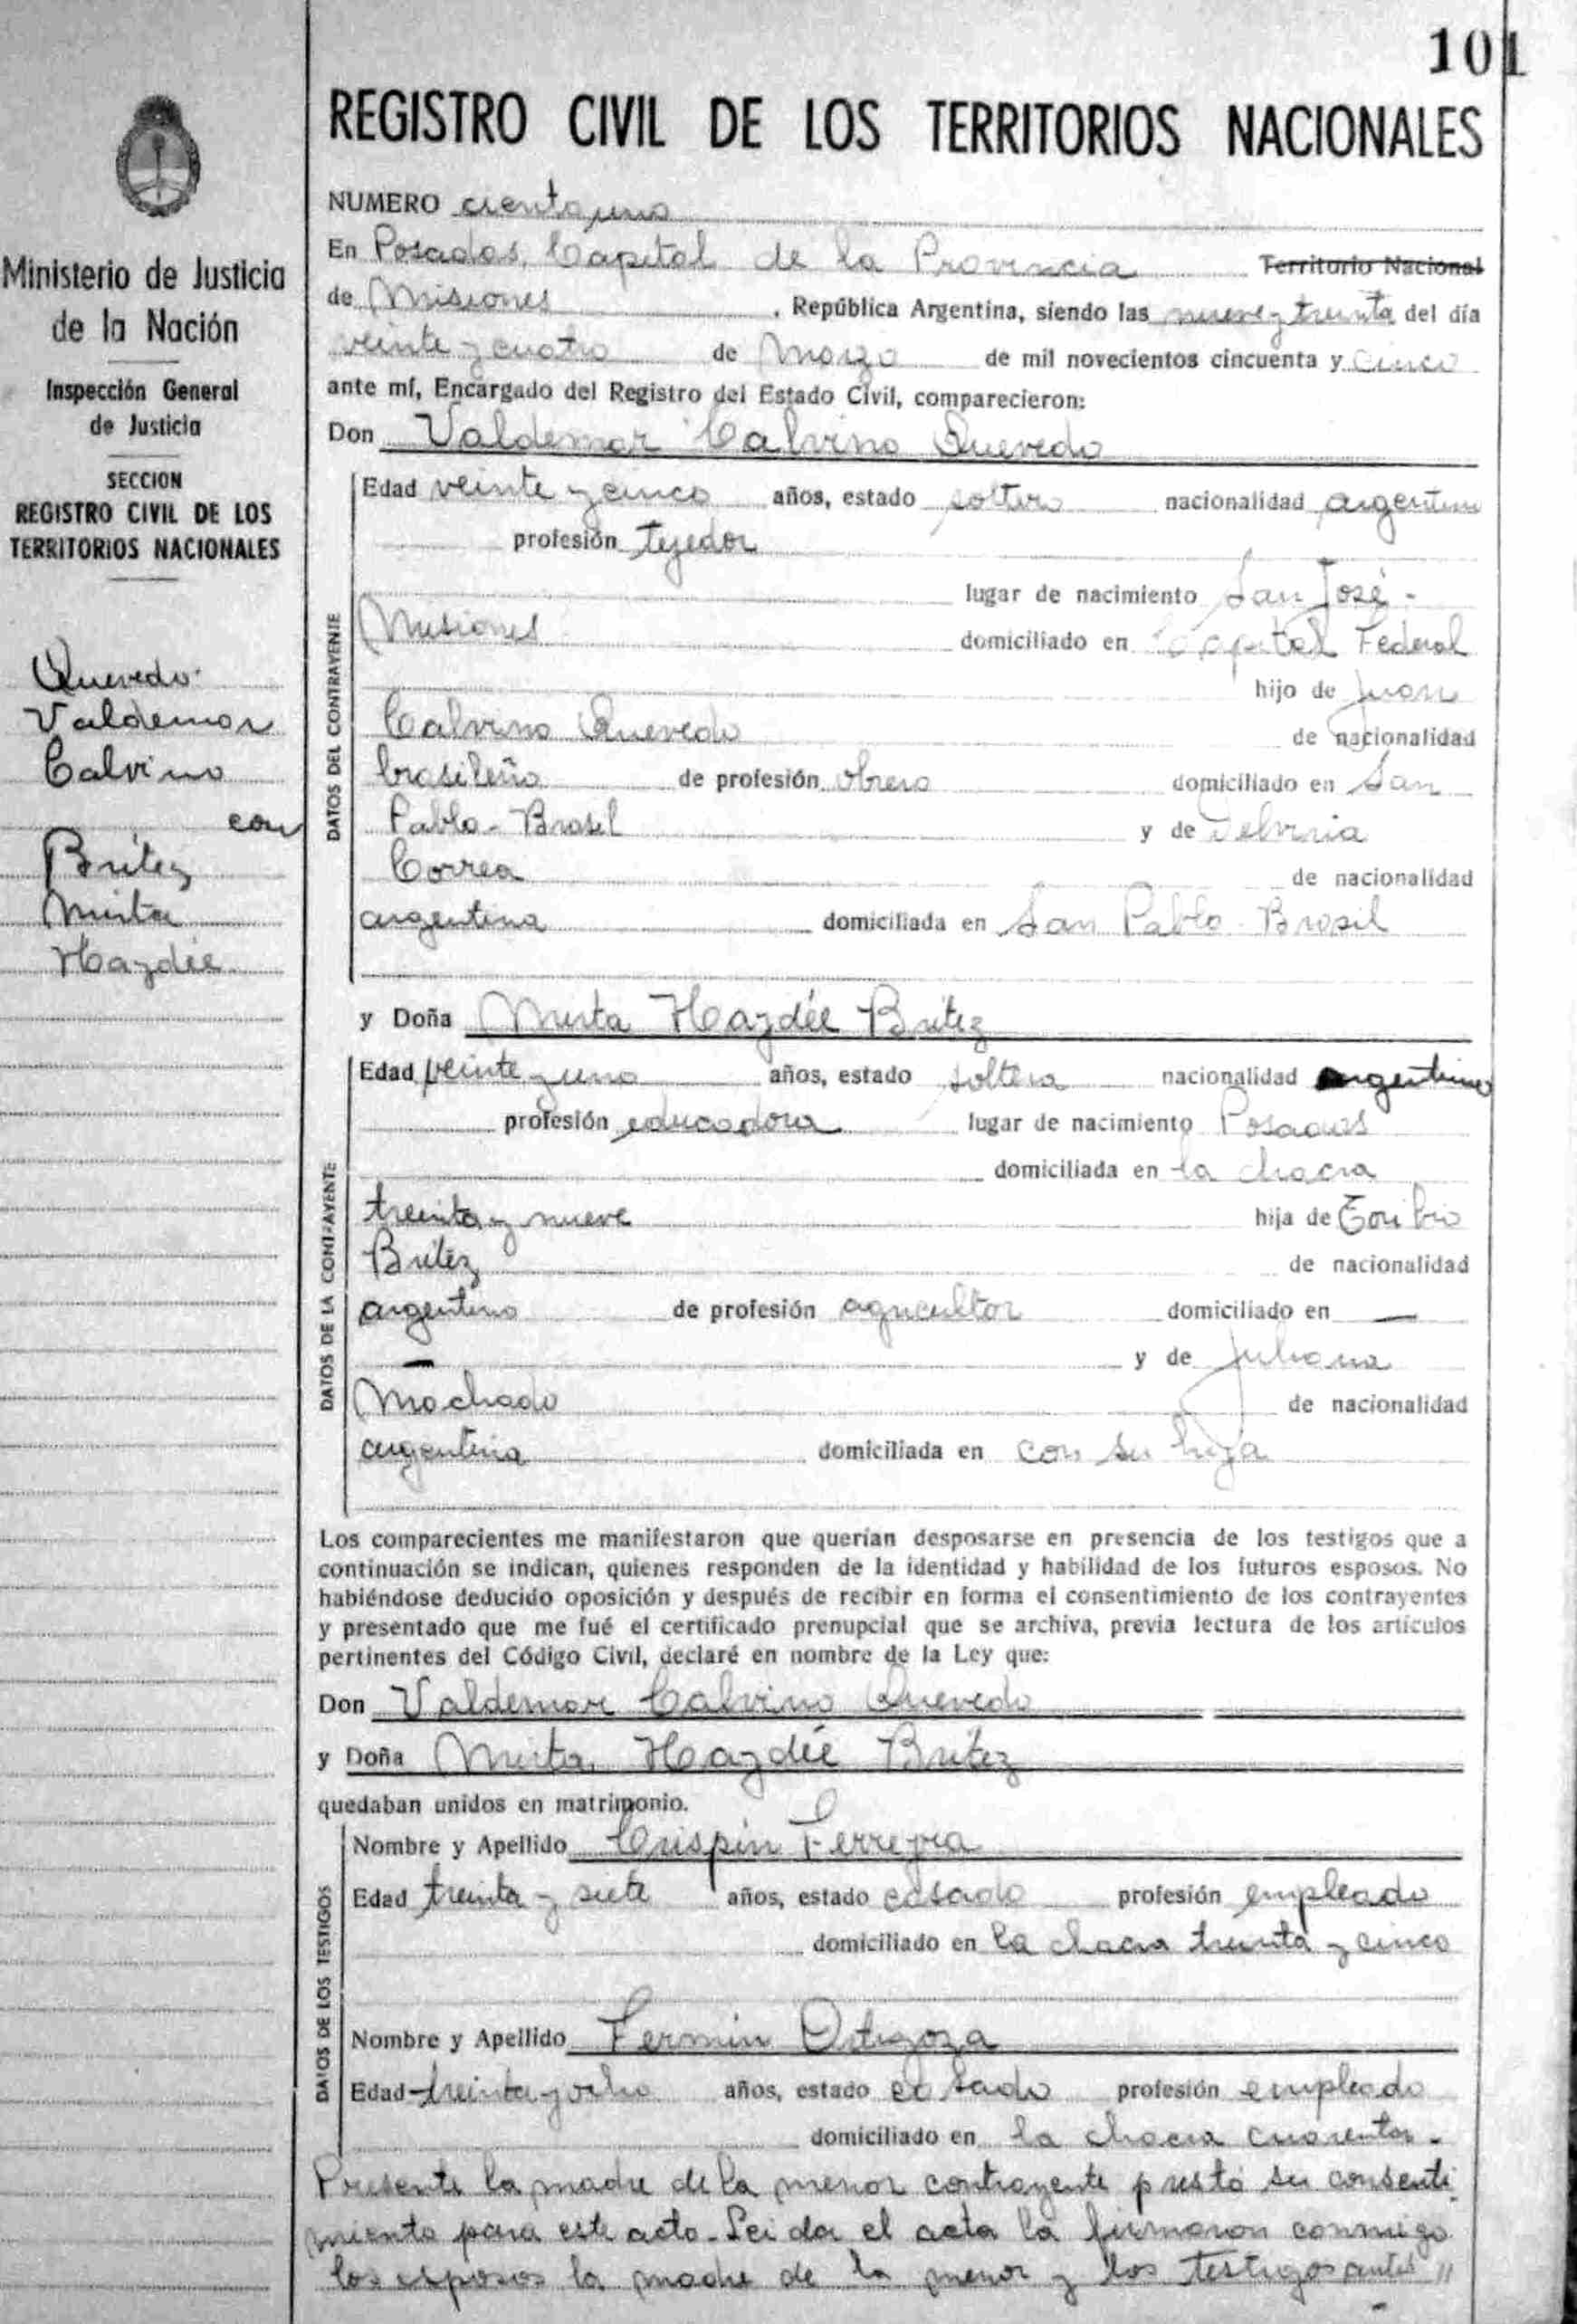 101
REGISTRO CIVIL DE LOS TERRITORIOS NACIONALES
Ministerio de Justicia
de la Nación
Inspección General
de Justicia
SECCION
REGISTRO CIVIL DE LOS
TERRITORIOS NACIONALES
Quevedo
Valdemar
Calvino
con
Britez
Mirta
Haydée
NUMERO ciento uno
En Posadas, Capital de la Provincia Territorio Nacional
de Misiones, República Argentina, siendo las nueve y treinta del día
veinte y cuatro de Marzo de mil novecientos cincuenta y cinco
ante mí, Encargado del Registro del Estado Civil, comparecieron:
Don Valdemar Calvino Quevedo
DATOS DEL CONTRAYENTE
Edad veinte y cinco años, estado soltero nacionalidad argentino
profesión tejedor
lugar de nacimiento San José -
Misiones domiciliado en Capital Federal
hijo de Juan
Calvino Quevedo de nacionalidad
brasileña de profesión obrero domiciliado en San
Pablo - Brasil y de
Correa de nacionalidad
argentina domiciliada en San Pablo - Brasil
y Doña Mirta Haydée Britez
DATOS DE LA CONTRAYENTE
Edad veinte y uno años, estado soltera nacionalidad argentina
profesión educadora lugar de nacimiento Posadas
domiciliada en la chacra
treinta y nueve hija de Toribio
Britez de nacionalidad
argentino de profesión agricultor domiciliado en —
— y de Juliana
Machado de nacionalidad
argentina domiciliada en con su hija
Los comparecientes me manifestaron que querían desposarse en presencia de los testigos que a
continuación se indican, quienes responden de la identidad y habilidad de los futuros esposos. No
habiéndose deducido oposición y después de recibir en forma el consentimiento de los contrayentes
y presentado que me fué el certificado prenupcial que se archiva, previa lectura de los artículos
pertinentes del Código Civil, declaré en nombre de la Ley que:
Don Valdemar Calvino Quevedo
y Doña Mirta Haydée Britez
quedaban unidos en matrimonio.
DATOS DE LOS TESTIGOS
Nombre y Apellido Crispín Ferreyra
Edad treinta y siete años, estado casado profesión empleado
domiciliado en la chacra treinta y cinco
Nombre y Apellido Fermín Ortigoza
Edad treinta y ocho años, estado casado profesión empleado
domiciliado en la chacra cuarenta -
Presente la madre de la menor contrayente prestó su consenti
miento para este acto - Leida el acta la firmaron conmigo
los esposos la madre de la menor y los testigos antes "